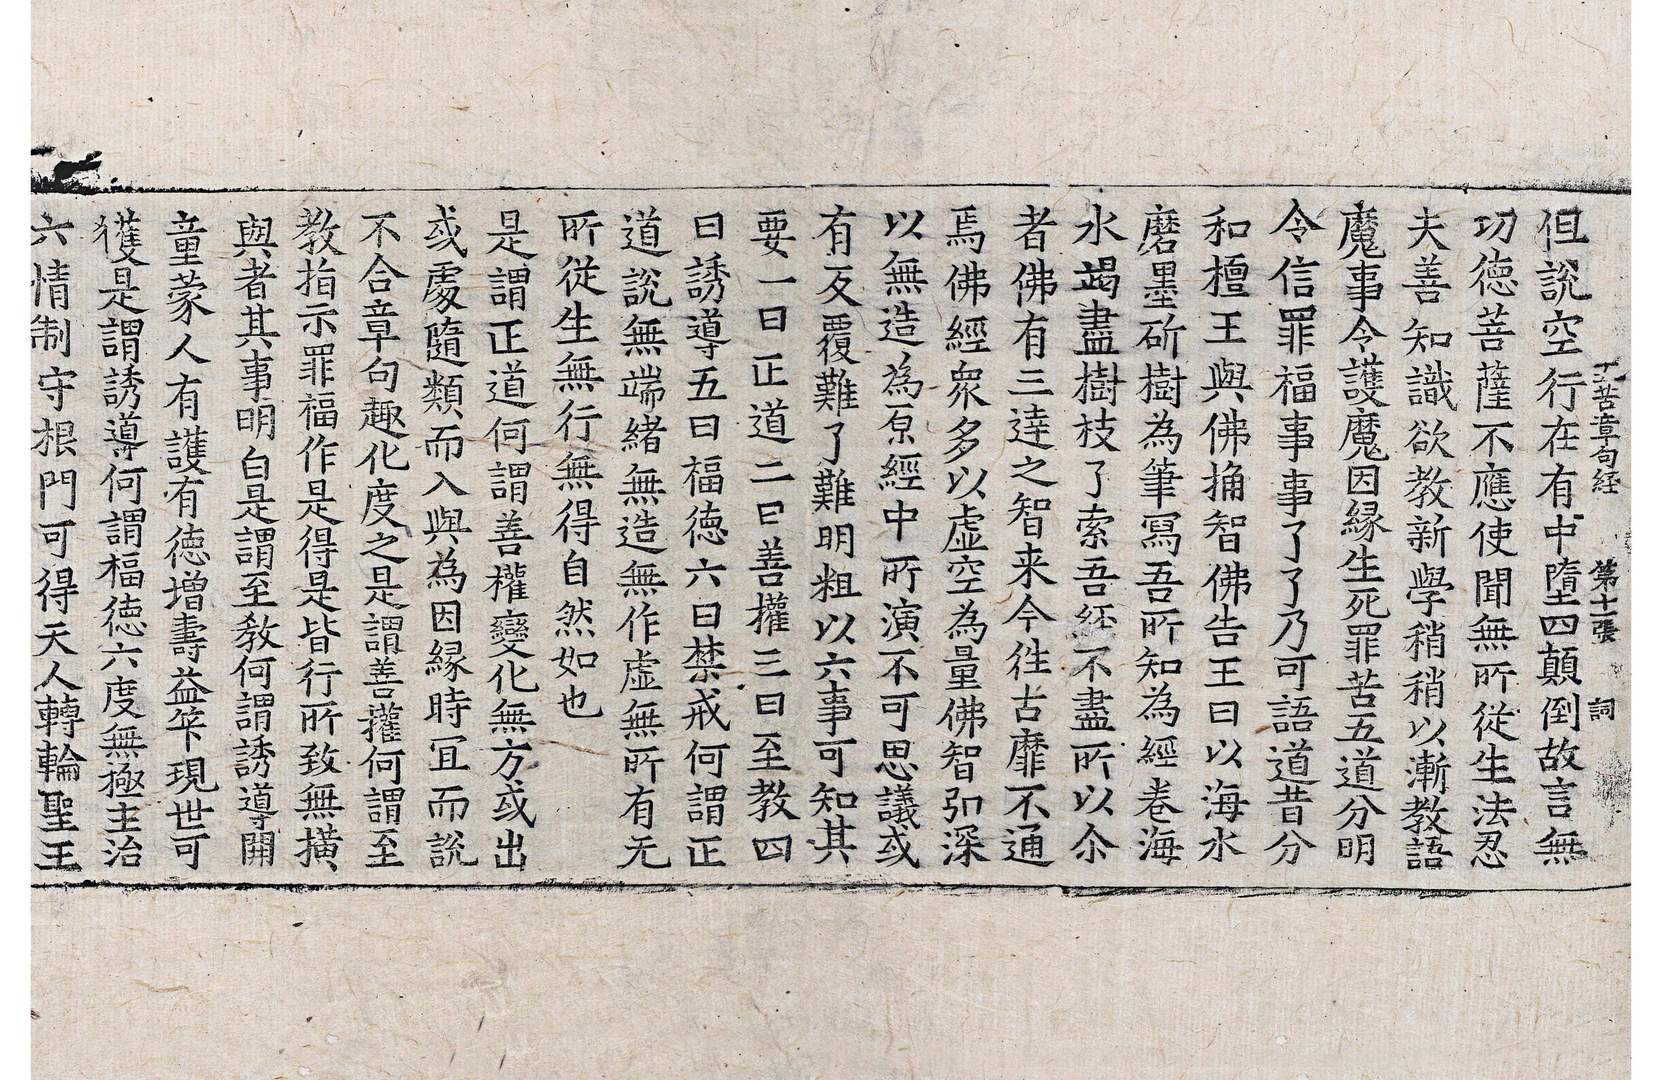 苦章句経 第十一張 詞
但說空行在有中墮四顛倒故言無
功徳菩薩不應使聞無所從生法忍
夫善知識欲教新學稍稍以漸教語
魔事令護魔因縁生死罪苦五道分明
令信罪福事事了了乃可語道昔分
和檀王與佛捔智佛告王曰以海水
磨墨斫樹為筆寫吾所知為經卷海
水竭盡樹枝了索吾経不盡所以尒
者佛有三達之智来今往古靡不通
焉佛經衆多以虚空為量佛智弘深
以無造為原經中所演不可思議或
有反覆難了難明粗以六事可知其
要一曰正道二曰善權三曰至教四
曰誘導五曰福徳六曰禁戒何謂正
道說無端緒無造無作虚無所有无
所從生無行無得自然如也
是謂正道何謂善權變化無方或出
或處隨類而入與為因縁時冝而說
不合章句趣化度之是謂善權何謂至
教指示罪福作是得是皆行所致無横
與者其事明白是謂至教何謂誘導開
童蒙人有護有徳增壽益筭現世可
獲是謂誘導何謂福徳六度無極主治
六情制守根門可得天人轉輪聖王